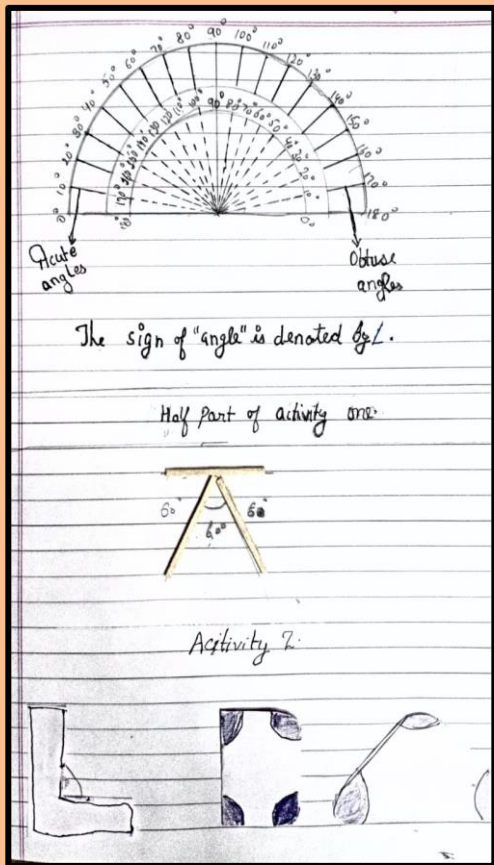 0° 10° 20° 30° 40° 50° 60° 70° 80° 90° 100° 110° 120° 130° 140° 150° 160° 170° 180°
180° 170° 160° 150° 140° 130° 120° 110° 100° 90° 80° 70° 60° 50° 40° 30° 20° 10° 0°
Acute angles
Obtuse angles
The sign of "angle" is denoted by ∠.
Half part of activity one.
60° 60° 60°
Acitivity 2.